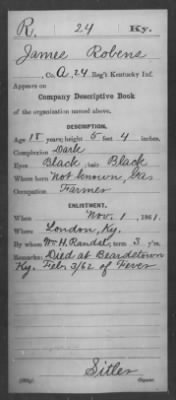 R. 24 Ky.
James Robens
, Co. A, 24 Reg't Kentucky Inf.
Appears on
Company Descriptive Book
of the organization named above.
DESCRIPTION.
Age 18 years; height 5 feet 4 inches.
Complexion Dark
Eyes Black; hair Black
Where born Not known,
Occupation Farmer
ENLISTMENT.
When Nov. 1, 1861.
Where London, Ky.
By whom Wm H. Randel; term 3 y'rs.
Remarks: Died at Beardstown
Ky. Feb. 3/62 of Fever
Sitler
Copyist.